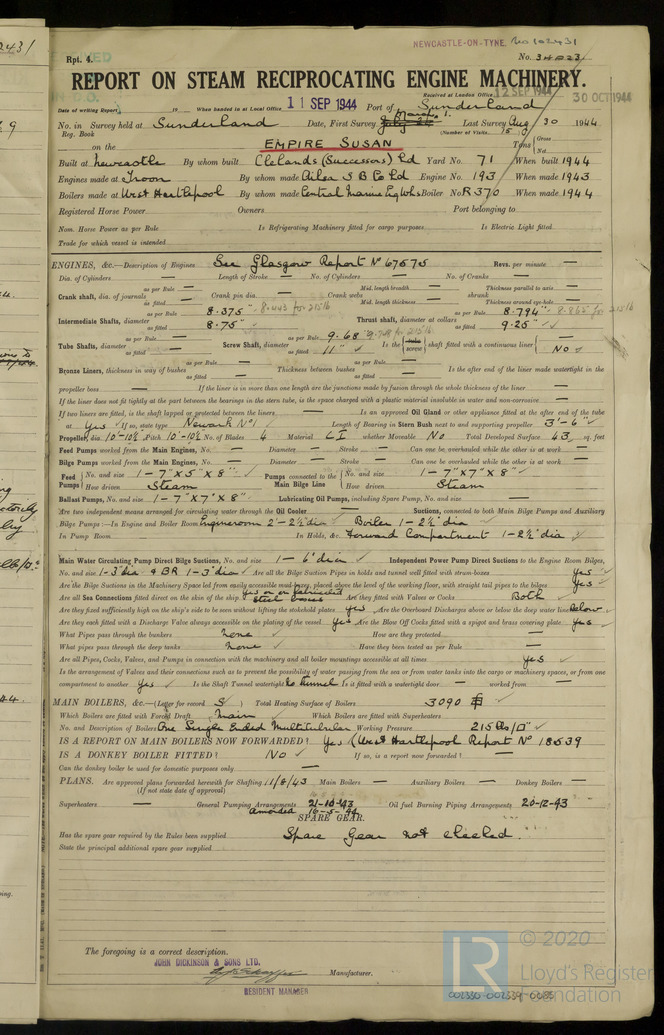 NEWCASTLE-ON-TYNE. No 102431
Rpt. 4.
No. 34023
REPORT ON STEAM RECIPROCATING ENGINE MACHINERY.
Received at London Office 12 SEP 1944
30 OCT 1944
Date of writing Report 19 When handed in at Local Office 11 SEP 1944 Port of Sunderland
No. in Survey held at Sunderland Date, First Survey March 1. Last Survey Aug 30 1944
Reg. Book (Number of Visits 15)
on the EMPIRE SUSAN Tons Gross Net
Built at Newcastle By whom built Clelands (Successors) Ld Yard No. 71 When built 1944
Engines made at Troon By whom made Ailsa S B Co Ld Engine No. 193 When made 1943
Boilers made at West Hartlepool By whom made Central Marine Eng Wks Boiler No. R370 When made 1944
Registered Horse Power Owners Port belonging to
Nom. Horse Power as per Rule Is Refrigerating Machinery fitted for cargo purposes Is Electric Light fitted
Trade for which vessel is intended
ENGINES, &c.—Description of Engines See Glasgow Report No 67575 Revs. per minute —
Dia. of Cylinders — Length of Stroke — No. of Cylinders — No. of Cranks —
Crank shaft, dia. of journals as per Rule — as fitted — Crank pin dia. — Crank webs Mid. length breadth — Mid. length thickness — shrunk Thickness parallel to axis — Thickness around eye-hole —
Intermediate Shafts, diameter as per Rule 8.375" 8.443 for 215 lb as fitted 8.75" Thrust shaft, diameter at collars as per Rule 8.794" 8.865 for 215 lb as fitted 9.25"
Tube Shafts, diameter as per Rule — as fitted — Screw Shaft, diameter as per Rule 9.68 as fitted 11" Is the tube screw shaft fitted with a continuous liner No
Bronze Liners, thickness in way of bushes as per Rule — as fitted — Thickness between bushes as per Rule — as fitted — Is the after end of the liner made watertight in the
propeller boss — If the liner is in more than one length are the junctions made by fusion through the whole thickness of the liner —
If the liner does not fit tightly at the part between the bearings in the stern tube, is the space charged with a plastic material insoluble in water and non-corrosive —
If two liners are fitted, is the shaft lapped or protected between the liners — Is an approved Oil Gland or other appliance fitted at the after end of the tube
at Yes If so, state type Newark No 1 Length of Bearing in Stern Bush next to and supporting propeller 3'-6"
Propeller, dia. 10'-10½ Pitch 10'-10½ No. of Blades 4 Material C I whether Moveable No Total Developed Surface 43 sq. feet
Feed Pumps worked from the Main Engines, No. — Diameter — Stroke — Can one be overhauled while the other is at work —
Bilge Pumps worked from the Main Engines, No. — Diameter — Stroke — Can one be overhauled while the other is at work —
Feed Pumps No. and size 1 - 7" X 5" X 8" How driven Steam Pumps connected to the Main Bilge Line No. and size 1 - 7" X 7" X 8" How driven Steam
Ballast Pumps, No. and size 1 - 7" X 7" X 8" Lubricating Oil Pumps, including Spare Pump, No. and size —
Are two independent means arranged for circulating water through the Oil Cooler — Suctions, connected to both Main Bilge Pumps and Auxiliary
Bilge Pumps:—In Engine and Boiler Room Engineroom 2 - 2½" dia Boiler 1 - 2½" dia
In Pump Room — In Holds, &c. Forward Compartment 1 - 2½" dia
Main Water Circulating Pump Direct Bilge Suctions, No. and size 1 - 6" dia Independent Power Pump Direct Suctions to the Engine Room Bilges,
No. and size 1 - 3" dia & BR 1 - 3" dia Are all the Bilge Suction Pipes in holds and tunnel well fitted with strum-boxes Yes
Are the Bilge Suctions in the Machinery Space led from easily accessible mud-boxes, placed above the level of the working floor, with straight tail pipes to the bilges Yes
Are all Sea Connections fitted direct on the skin of the ship Yes or on fabricated steel boxes Are they fitted with Valves or Cocks Both
Are they fixed sufficiently high on the ship's side to be seen without lifting the stokehold plates Yes Are the Overboard Discharges above or below the deep water line Below
Are they each fitted with a Discharge Valve always accessible on the plating of the vessel Yes Are the Blow Off Cocks fitted with a spigot and brass covering plate Yes
What Pipes pass through the bunkers None How are they protected —
What pipes pass through the deep tanks None Have they been tested as per Rule —
Are all Pipes, Cocks, Valves, and Pumps in connection with the machinery and all boiler mountings accessible at all times Yes
Is the arrangement of Valves and their connections such as to prevent the possibility of water passing from the sea or from water tanks into the cargo or machinery spaces, or from one
compartment to another Yes Is the Shaft Tunnel watertight No tunnel Is it fitted with a watertight door — worked from —
MAIN BOILERS, &c.—(Letter for record S) Total Heating Surface of Boilers 3090
Which Boilers are fitted with Forced Draft Main Which Boilers are fitted with Superheaters —
No. and Description of Boilers One Single Ended Multitubular Working Pressure 215 lbs/□"
IS A REPORT ON MAIN BOILERS NOW FORWARDED? Yes (West Hartlepool Report No 18539
IS A DONKEY BOILER FITTED? No If so, is a report now forwarded? —
Can the donkey boiler be used for domestic purposes only —
PLANS. Are approved plans forwarded herewith for Shafting 11/8/43 Main Boilers — Auxiliary Boilers — Donkey Boilers —
(If not state date of approval)
Superheaters — General Pumping Arrangements 21-10-43 Oil fuel Burning Piping Arrangements 20-12-43
Amended 19-5-44
SPARE GEAR.
Has the spare gear required by the Rules been supplied Spare Gear not checked.
State the principal additional spare gear supplied
The foregoing is a correct description.
JOHN DICKINSON & SONS LTD.
Manufacturer.
RESIDENT MANAGER
© 2020
LR Lloyd's Register Foundation